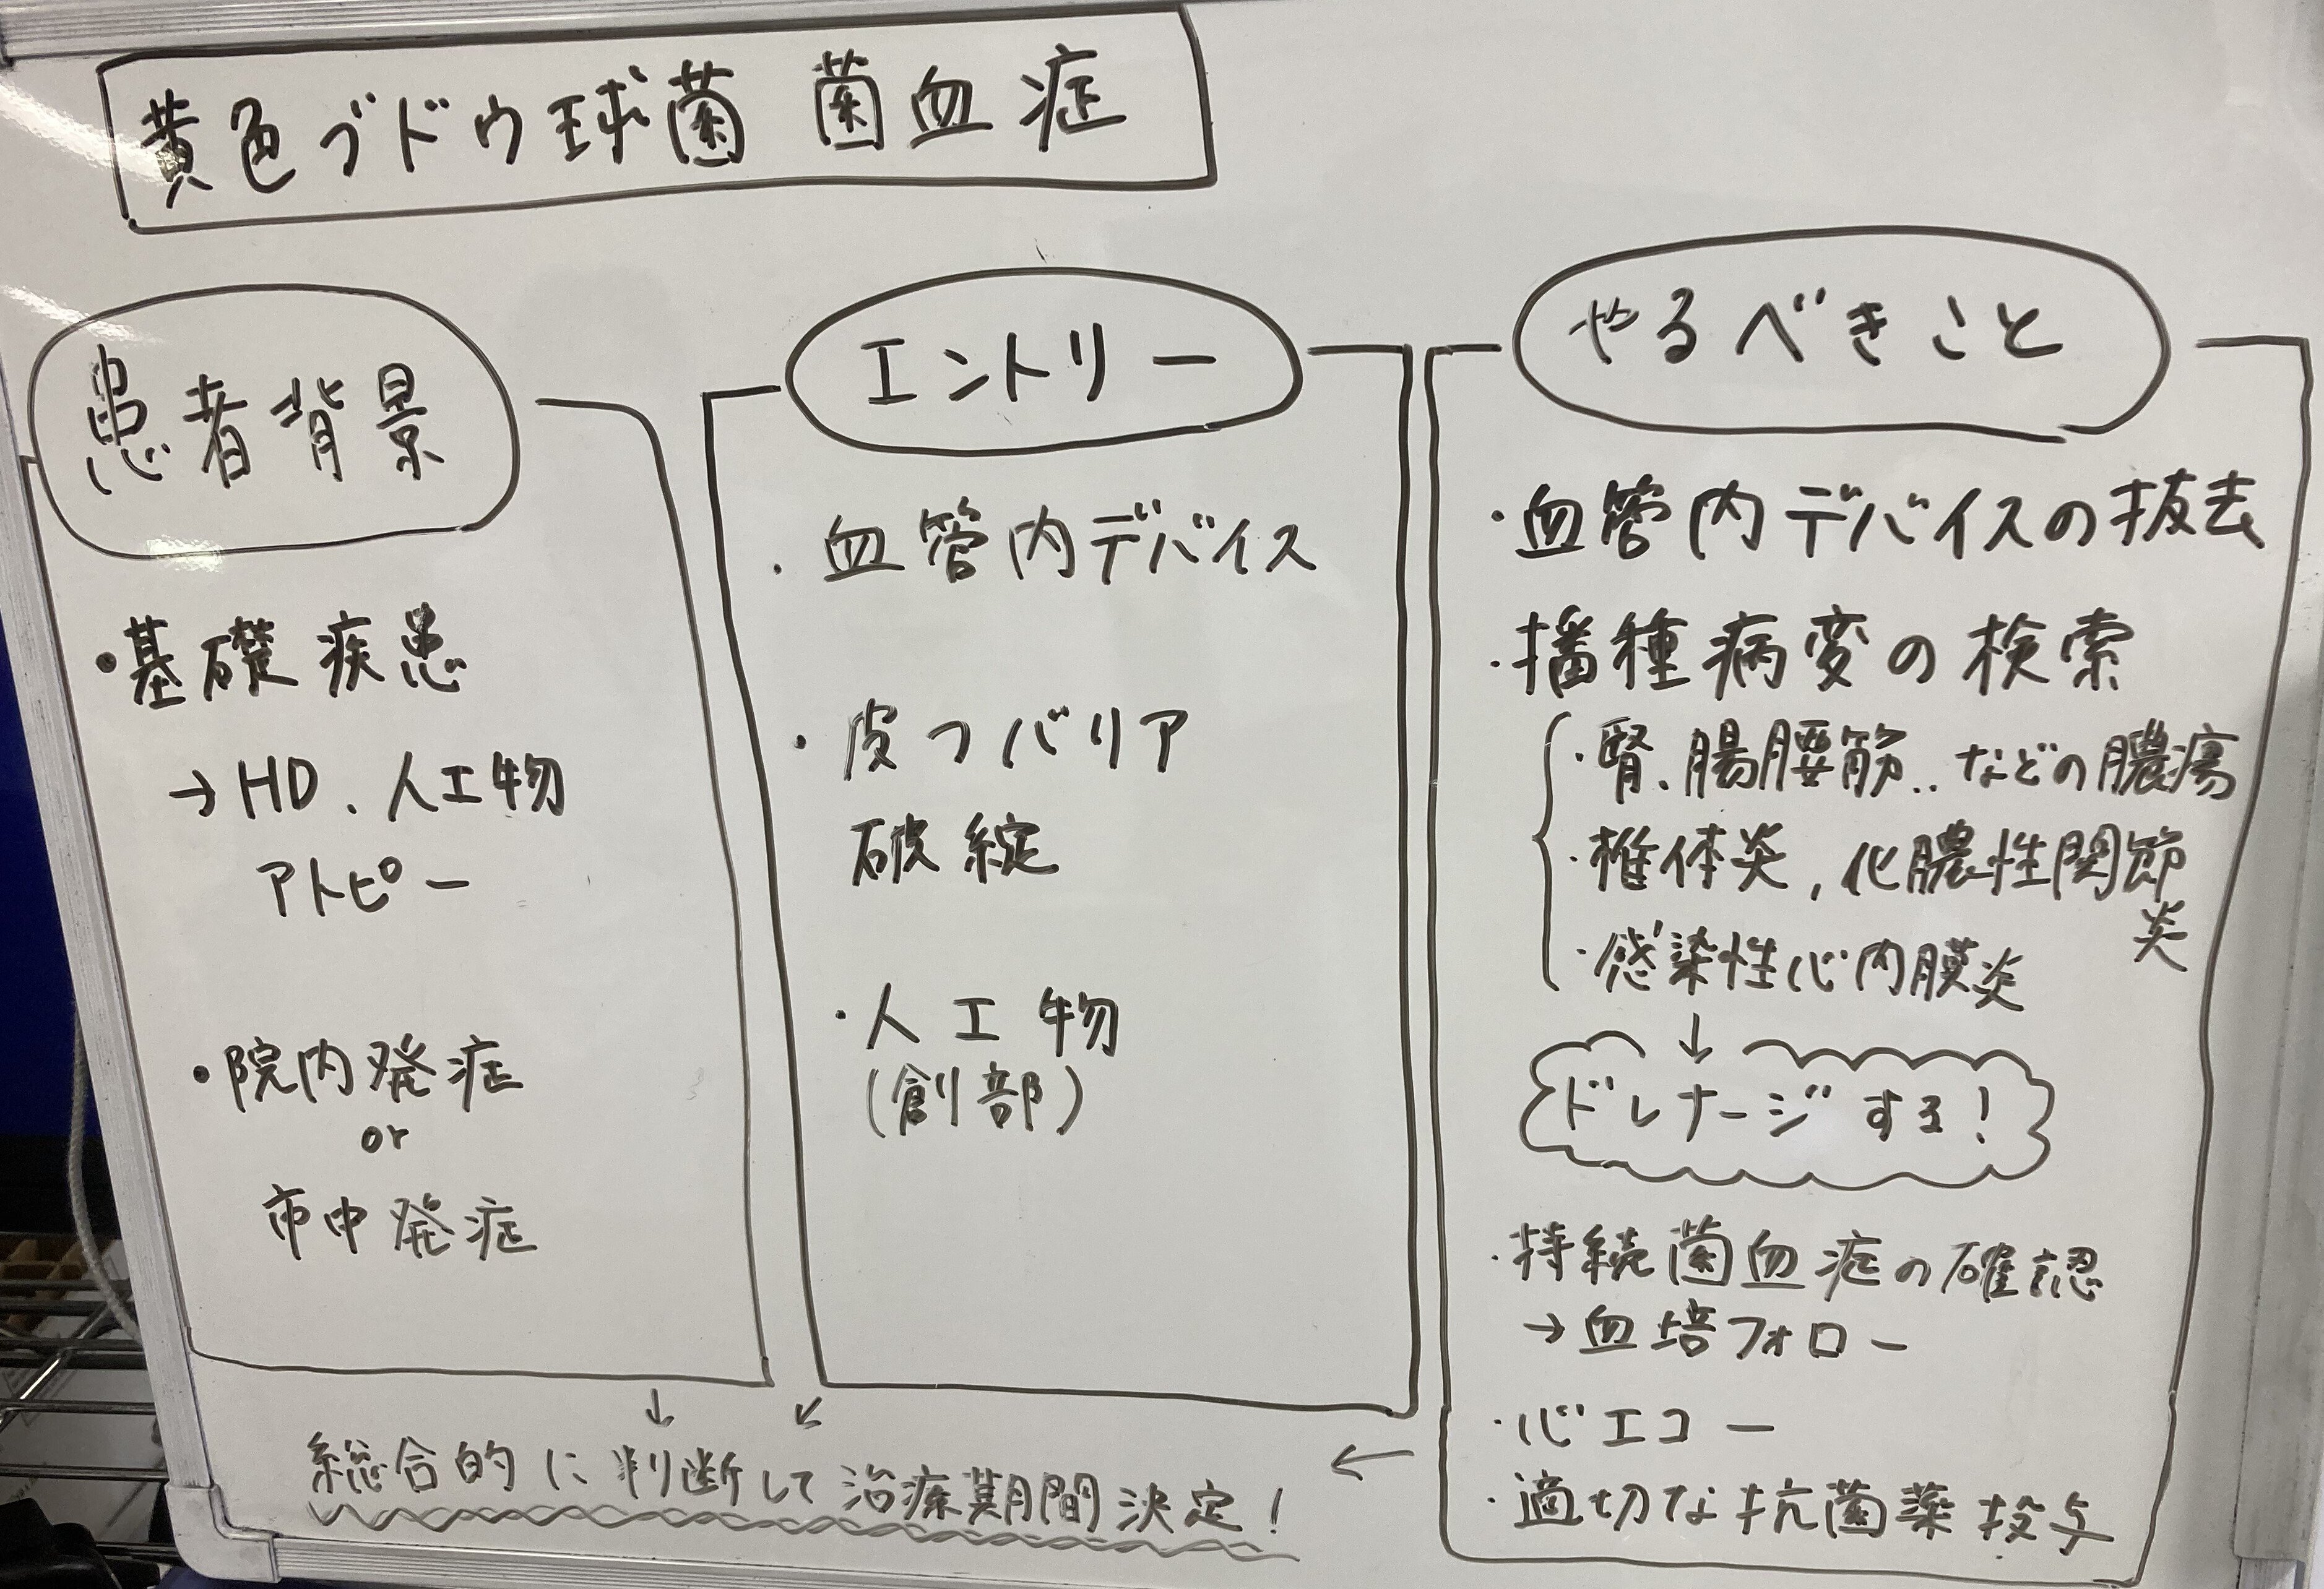 黄色ブドウ球菌 菌血症
患者背景
・基礎疾患
→HD、人工物
アトピー
・院内発症
or
市中発症
エントリー
・血管内デバイス
・皮フバリア
破綻
・人工物
(創部)
やるべきこと
・血管内デバイスの抜去
・播種病変の検索
・腎、腸腰筋‥などの膿瘍
・椎体炎,化膿性関節
炎
・感染性心内膜炎
↓
ドレナージする!
・持続菌血症の確認
→血培フォロー
・心エコー
・適切な抗菌薬投与
↓ ↙ ←
総合的に判断して治療期間決定!